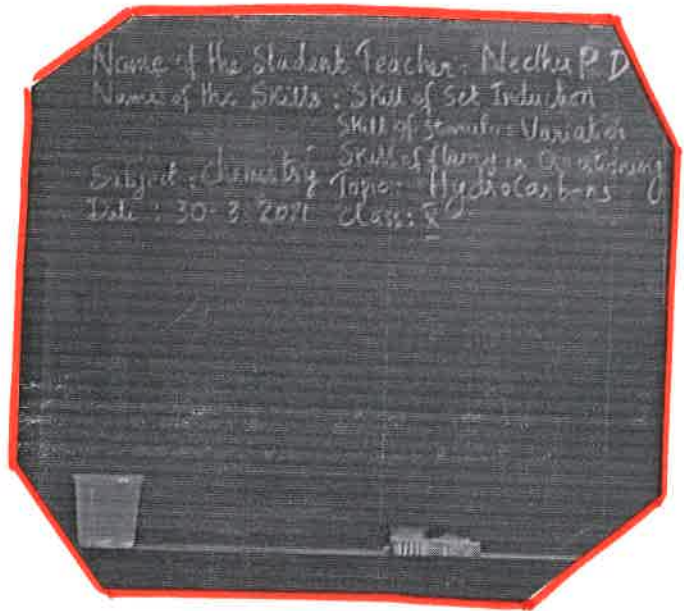 Name of the Student Teacher: Neethu P D
Name of the Skills: Skill of Set Induction
Skill of Stimulus Variation
Skill of fluency in Questioning
Subject: Chemistry Topic: Hydrocarbons
Date: 30-3 Class: X